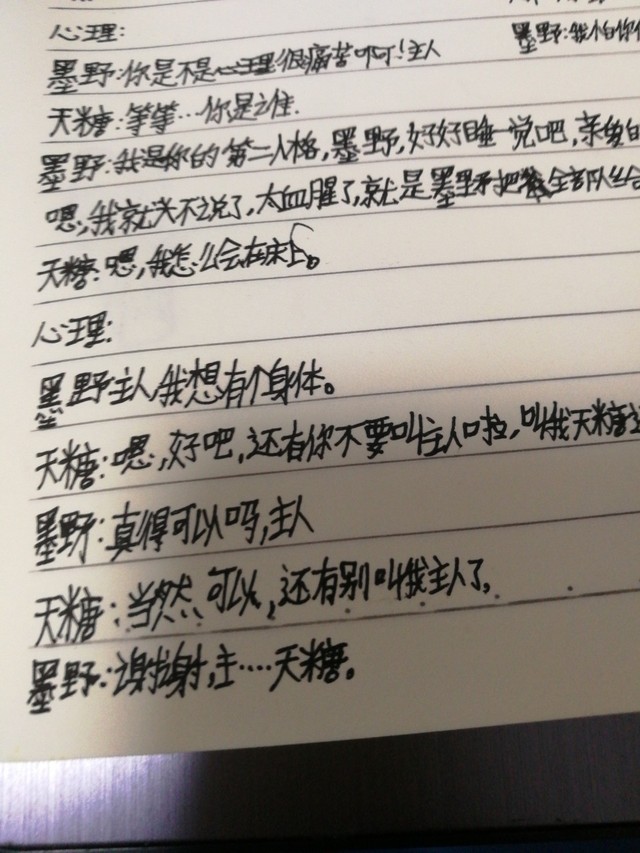 心理:
墨野:我
墨野:你是不是心理很痛苦啊!主人
天糖:等等…你是谁.
墨野:我是你的第二人格,墨野,好好睡一觉吧,亲爱的
嗯,我就不说了,太血腥了,就是墨野把全部队给
天糖:嗯,我怎么会在床上。
心理:
墨野主人,我想有个身体。
天糖:嗯,好吧,还有你不要叫主人啦,叫我天糖
墨野:真得可以吗,主人
天糖:当然可以,还有别叫我主人了,
墨野:谢谢,主….天糖。